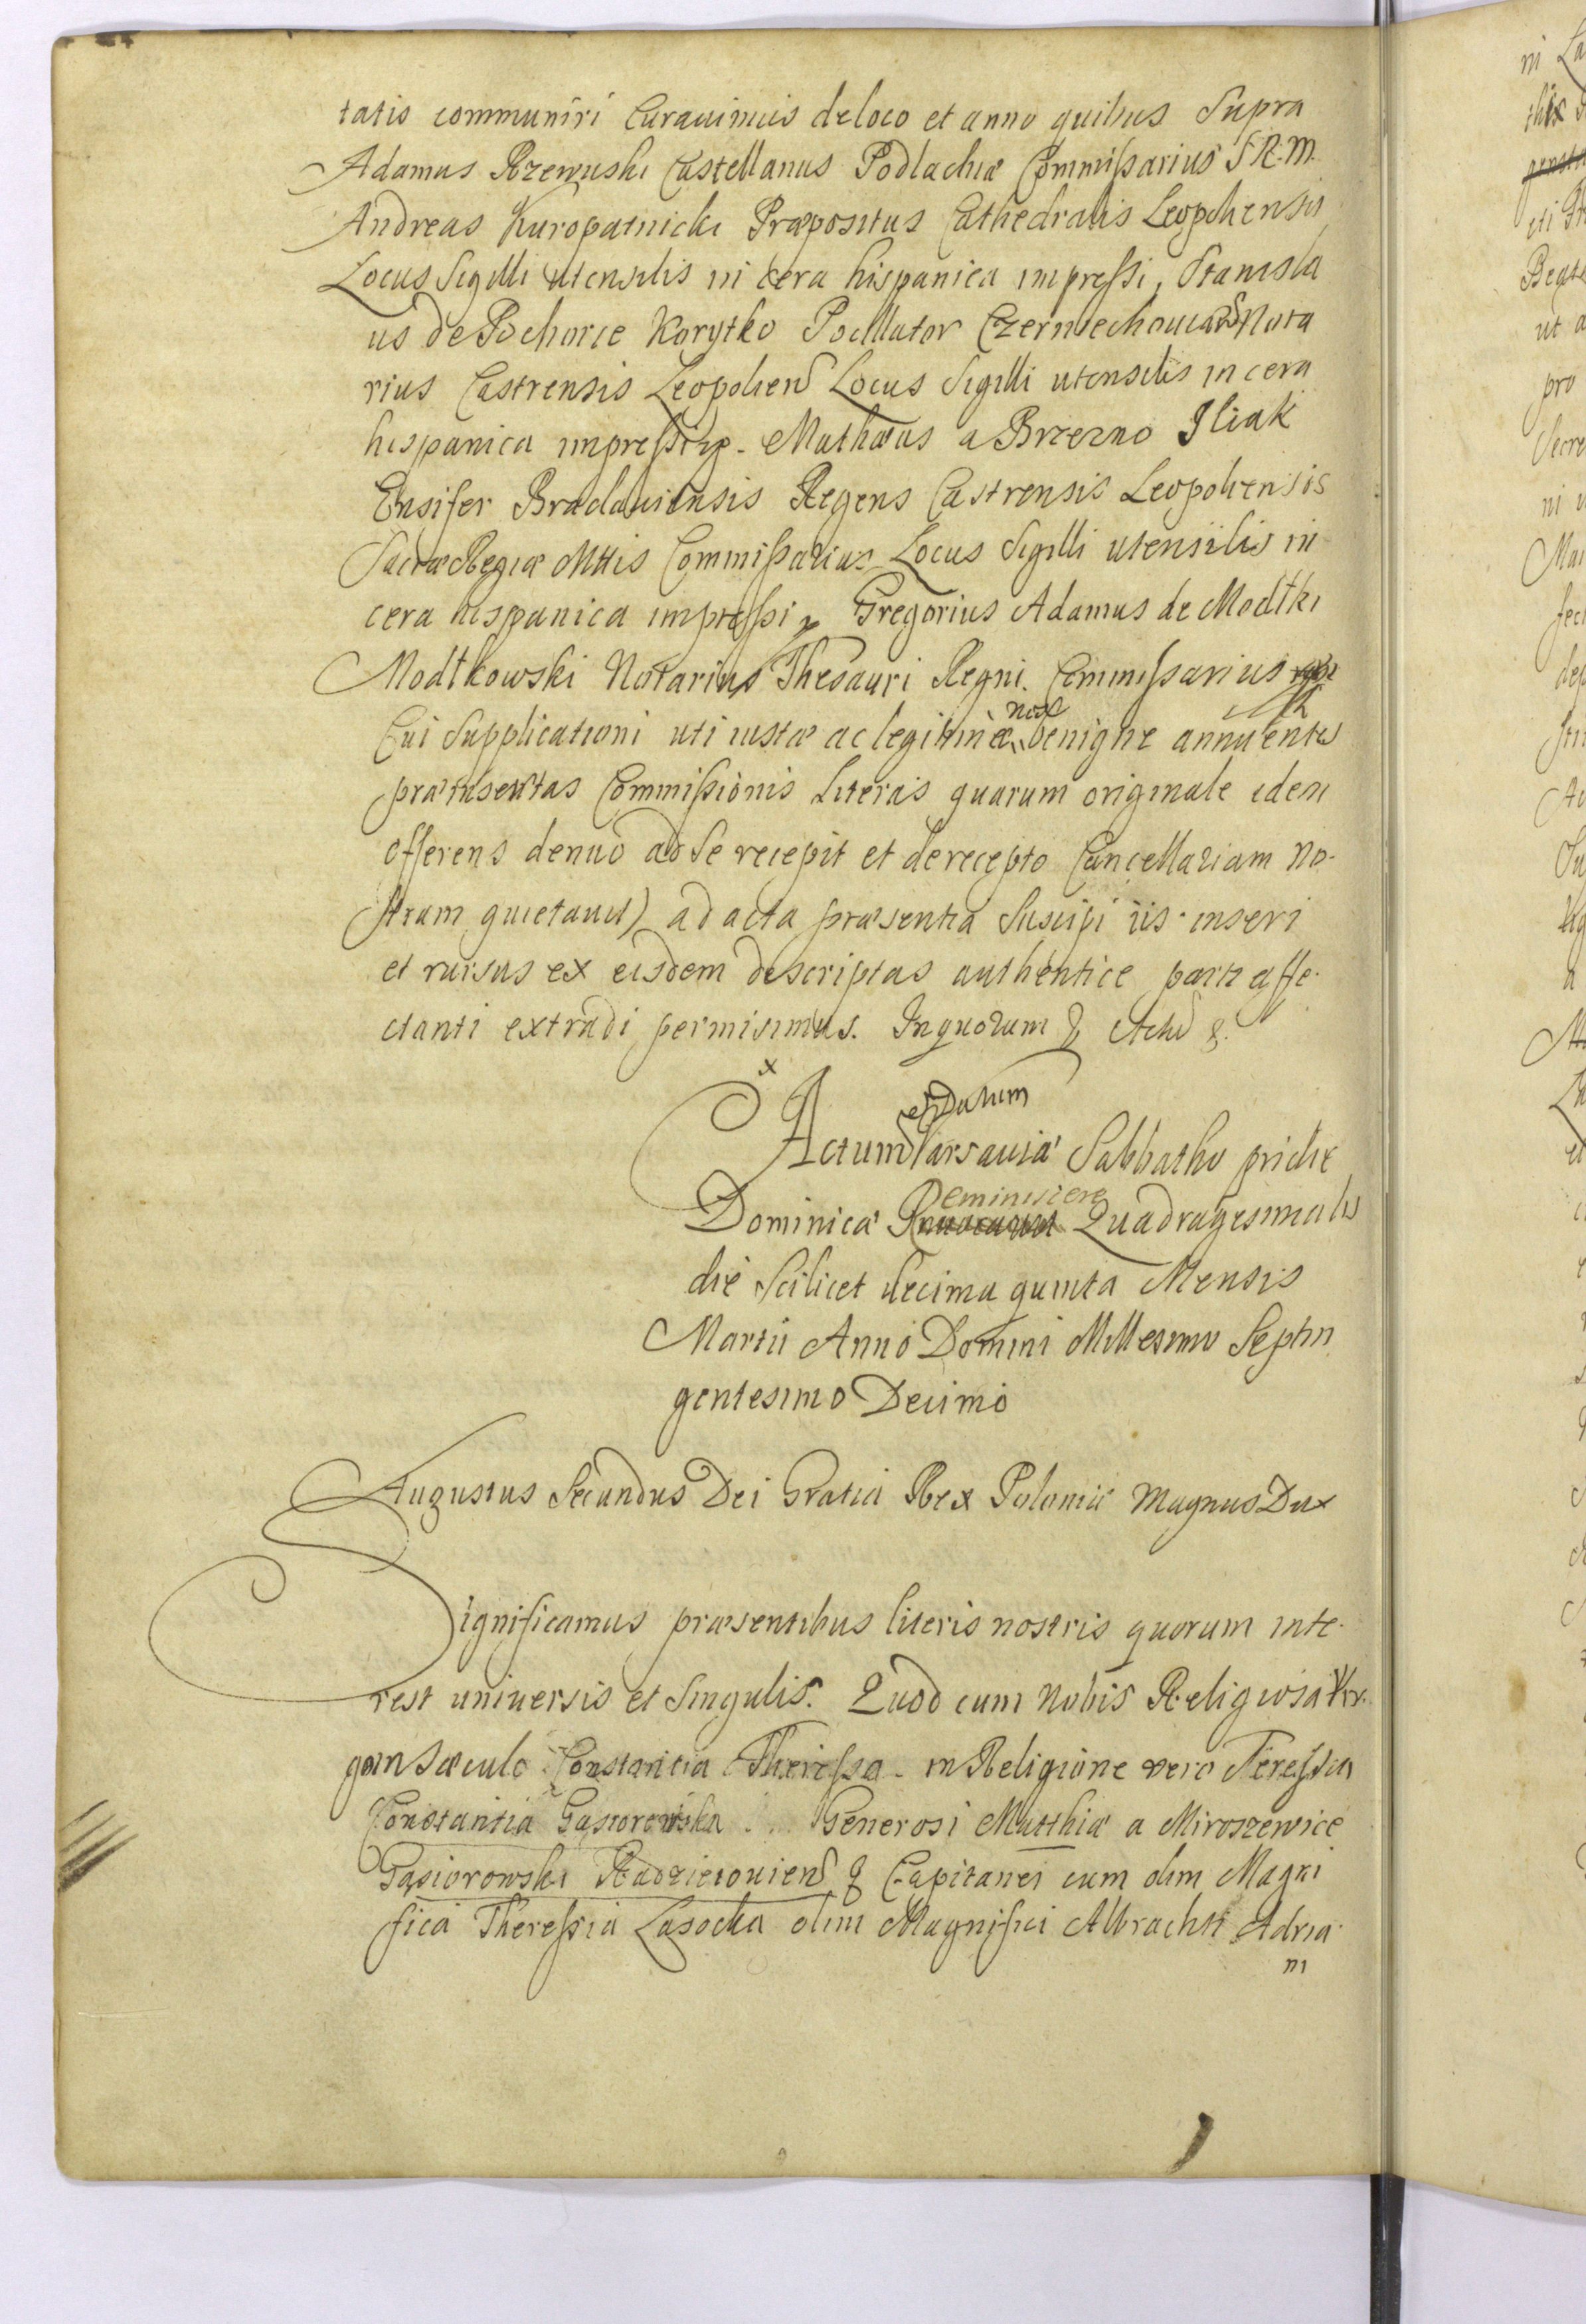 tatis communiri Curavimus de loco et anno quibus Supra
Adamus Rzewuski Castellanus Podlachiæ Commissarius S R. M.
Andreas Kuropatnicki Præpositus Cathedralis Leopoliensis
Locus Sigilli utensilis in cera hispanica impressi, Stanisla
us de Pochorce Korytko Pocillator Czerniechoviens Nota
rius Castrensis Leopoliens Locus Sigilli utensilis in cera
hispanica impressi Mathæus a Brzezno Iliak
Ensifer Braclaviensis Regens Castrensis Leopoliensis
Sacræ Regiæ Mttis Commissarius Locus Sigilli utensilis in
cera hispanica impressi Gregorius Adamus de Modłki
Modłkowski Notarius Thesauri Regni Commissarius
Cui Supplicationi uti iustæ ac legitimæ Nos benigne annuentes
præinsertas Commissionis Literas quarum originale idem
offerens denuo ad Se recepit et de recepto Cancellariam no-
stram quietavit) ad acta præsentia Suscipi iis inseri
et rursus ex eisdem descriptas authentice parti affe-
ctanti extradi permisimus. In quorum & Actu &.
et Datum
Actum Varsaviæ Sabbatho pridie
Dominicæ Reminiscere Quadragesimalis
die Scilicet decima quinta Mensis
Martii Anno Domini Millesimo Septin
gentesimo Decimo
Augustus Secundus Dei Gratia Rex Poloniæ Magnus Dux
Significamus præsentibus literis nostris quorum inte-
rest universis et Singulis. Quod cum Nobis Religiosa Vir-
go in Sæculo Constantia Theressa in Religione vero Teressia
Constantia Gąsiorowska Generosi Matthiæ a Miroszewice
Gąsiorowski Radzieioviens & Capitanei cum olim Magni
fica Theressia Lasocka olim Magnifici Albrachti Adria-
ni